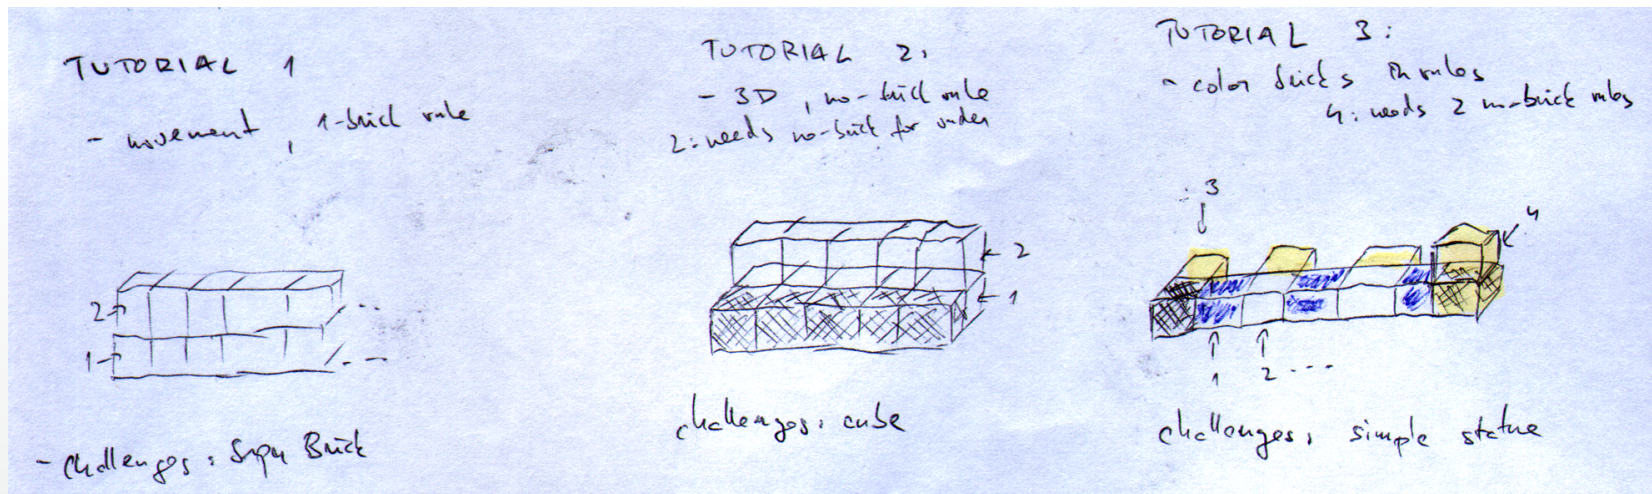 TUTORIAL 1
- movement, 1-brick rule
2
1
- challenges: Brick
TUTORIAL 2:
- 3D, no-brick rule
2: needs no-brick for under
2
1
challenges: cube
TUTORIAL 3:
- color bricks in rules
4: needs 2 no-brick rules
3
4
1 2 ...
challenges: simple statue